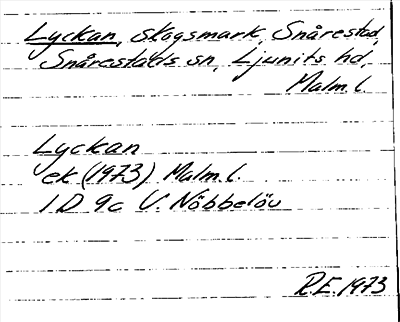 Lyckan, skogsmark, Snårestad,
Snårestads sn, Ljunits hd,
Malm.l.
Lyckan
ek (1973) Malm.l.
1D 9c V. Nöbbelöv
R.E. 1973